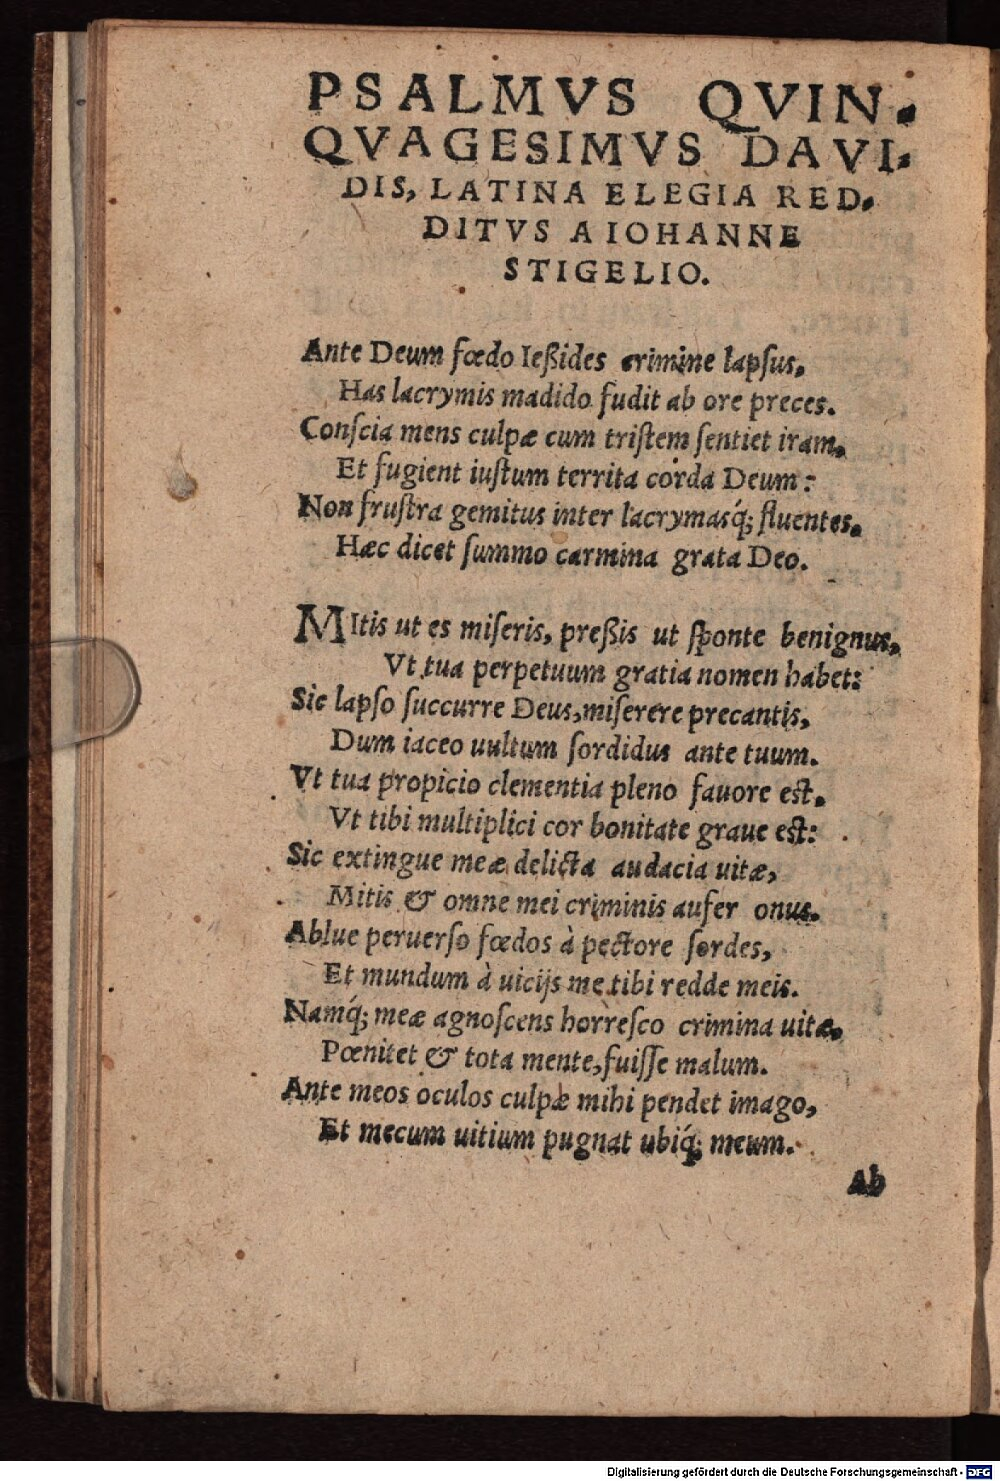 PSALMVS QVIN-
QVAGESIMVS DAVI-
DIS, LATINA ELEGIA RED-
DITVS A IOHANNE
STIGELIO.
Ante Deum fœdo Ießides crimine lapſus,
Has lacrymis madido fudit ab ore preces.
Conſcia mens culpæ cum triſtem ſentiet iram,
Et fugient iuſtum territa corda Deum:
Non fruſtra gemitus inter lacrymasq́; fluentes,
Hæc dicet ſummo carmina grata Deo.
MItis ut es miſeris, preßis ut ſponte benignus,
Vt tua perpetuum gratia nomen habet:
Sic lapſo ſuccurre Deus, miſerere precantis,
Dum iaceo uultum ſordidus ante tuum.
Vt tua propicio clementia pleno fauore est,
Vt tibi multiplici cor bonitate graue est:
Sic extingue meæ delicta audacia uitæ,
Mitis & omne mei criminis aufer onus.
Ablue peruerſo fœdos à pectore ſordes,
Et mundum à uicijs me tibi redde meis.
Namq́; meæ agnoſcens horreſco crimina uitæ,
Pœnitet & tota mente, fuiſſe malum.
Ante meos oculos culpæ mihi pendet imago,
Et mecum uitium pugnat ubiq́; meum.
Ab
Digitalisierung gefördert durch die Deutsche Forschungsgemeinschaft - DFG